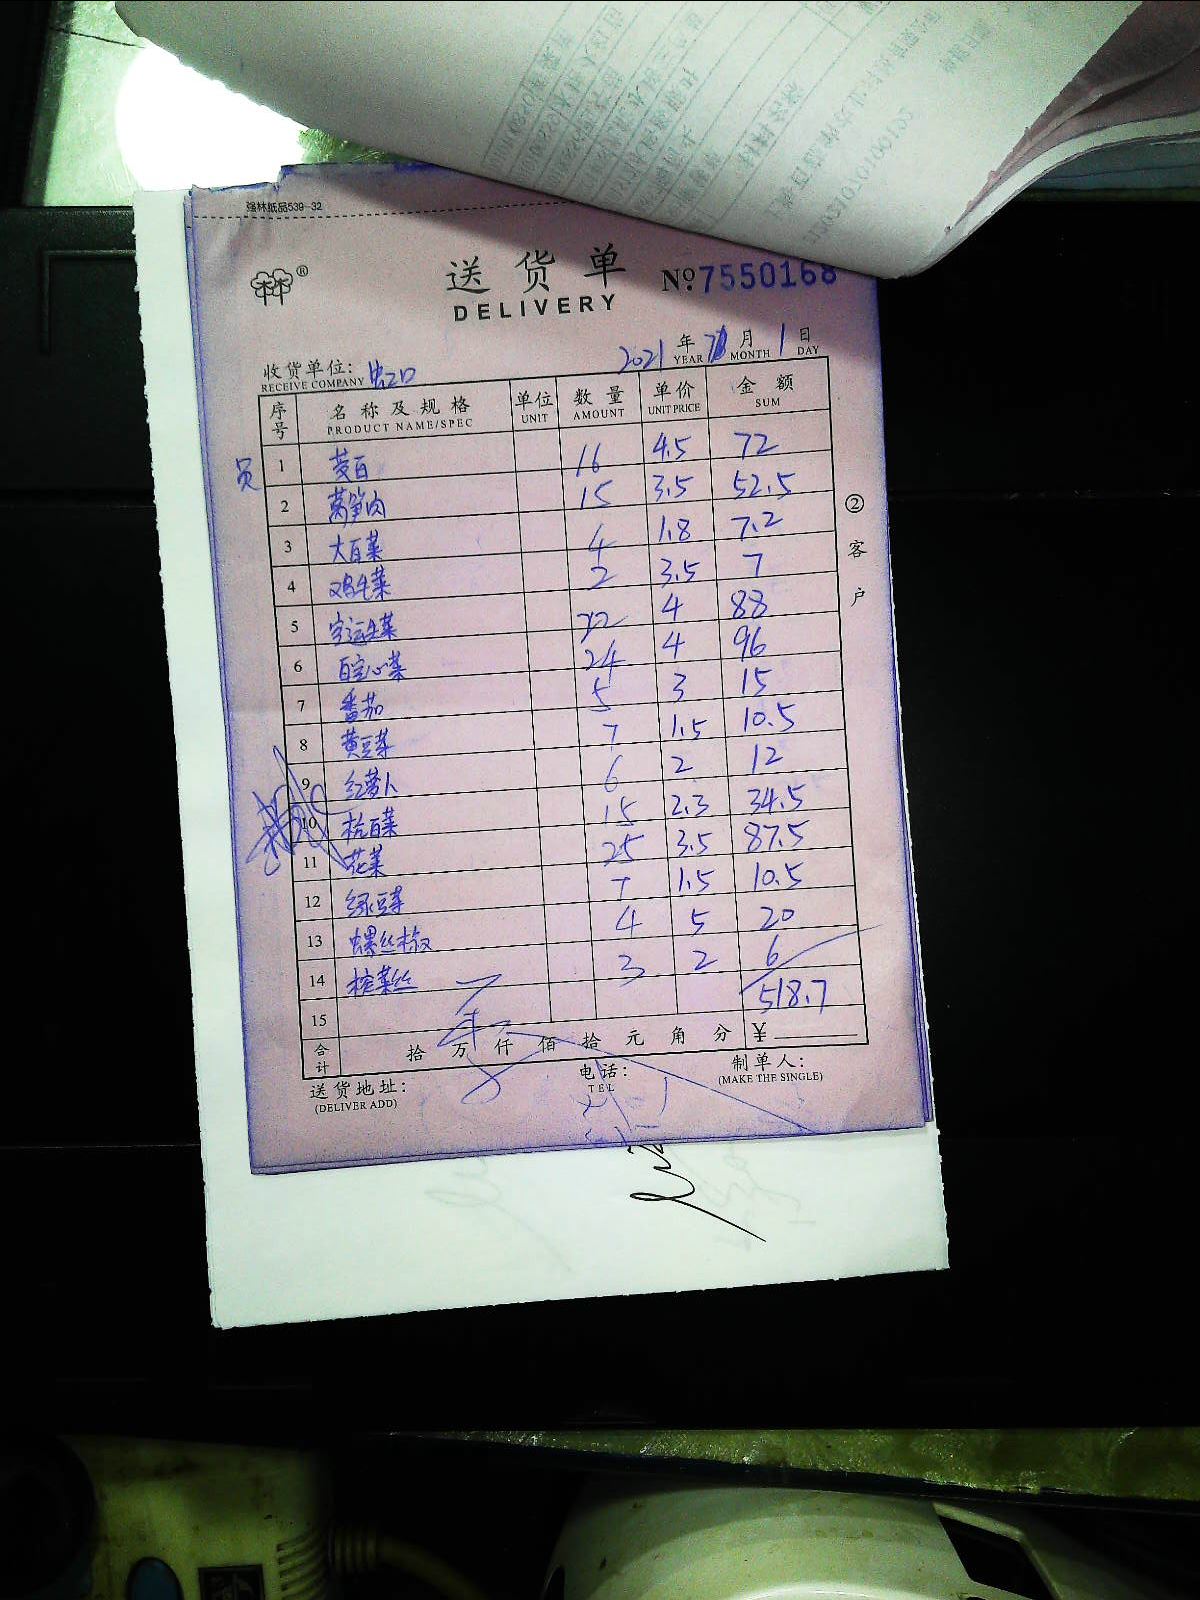 强林纸品539-32
送货单 №7550168
DELIVERY
收货单位：虹口 2021年7月1日
RECEIVE COMPANY YEAR MONTH DAY
序号 名称及规格 单位 数量 单价 金额
PRODUCT NAME/SPEC UNIT AMOUNT UNIT PRICE SUM
员
1 茭白 16 4.5 72
2 莴笋肉 15 3.5 52.5
3 大白菜 4 1.8 7.2
4 鸡毛菜 2 3.5 7
5 生菜 22 4 88
6 白空心菜 24 4 96
7 番茄 5 3 15
8 黄豆芽 7 1.5 10.5
9 红萝卜 6 2 12
10 杭白菜 15 2.3 34.5
11 花菜 25 3.5 87.5
12 绿豆芽 7 1.5 10.5
13 螺丝椒 4 5 20
14 榨菜丝 3 2 6
15 518.7
合计 拾 万 仟 佰 拾 元 角 分 ¥
送货地址：
(DELIVER ADD)
电话：
TEL
制单人：
(MAKE THE SINGLE)
②客户